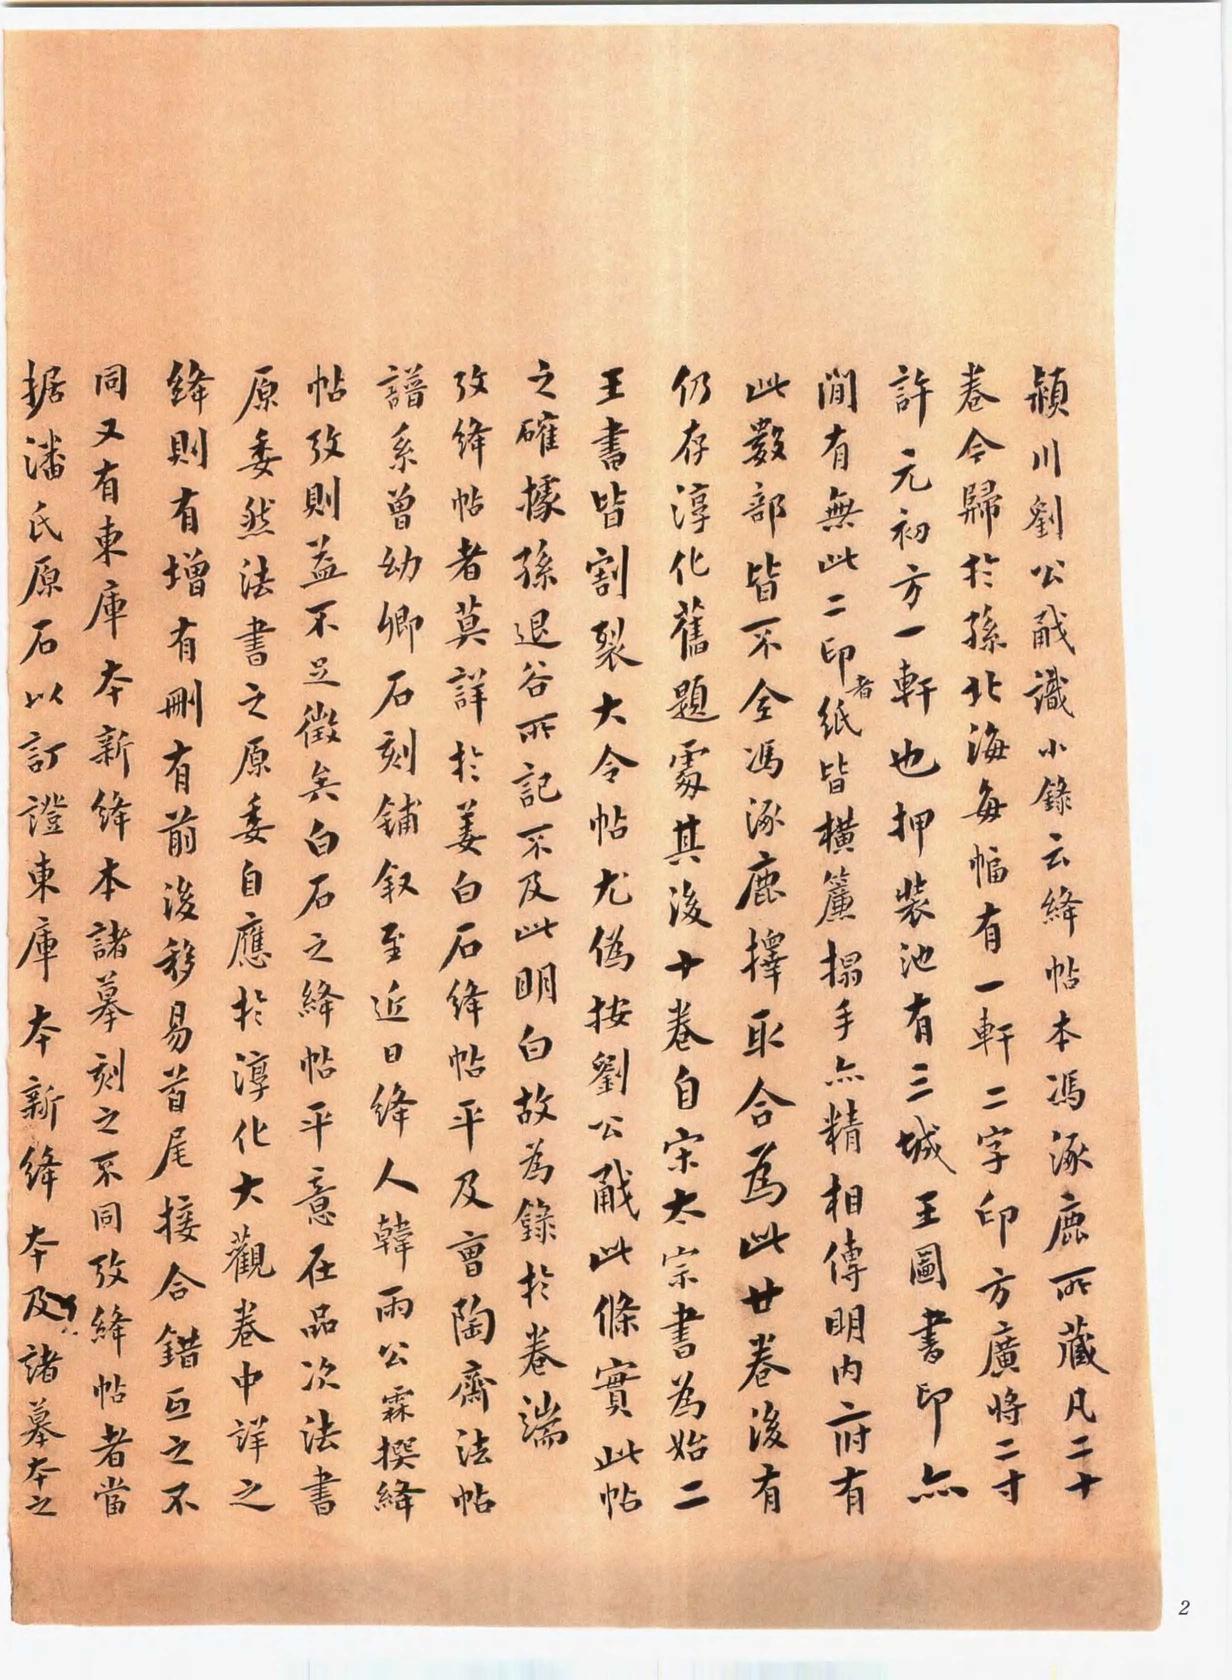 潁川劉公㦷識小錄云絳帖本馮涿鹿所藏凡二十
卷今歸於孫北海每幅有一軒二字印方廣將二寸
許元初方一軒也押裝池有三城王圖書印亦
間有無此二印者紙皆橫簾搨手亦精相傳明內府有
此數部皆不全馮涿鹿擇取合為此廿卷後有
仍存淳化舊題處其後十卷自宋太宗書為始二
王書皆割裂大令帖尤偽按劉公㦷此條實此帖
之確據孫退谷所記不及此明白故為錄於卷端
攷絳帖者莫詳於姜白石絳帖平及曹陶齋法帖
譜系曾幼卿石刻鋪叙至近日絳人韓雨公霖撰絳
帖攷則益不足徵矣白石之絳帖平意在品次法書
原委然法書之原委自應於淳化大觀卷中詳之
絳則有增有刪有前後移易首尾接合錯互之不
同又有東庫本新絳本諸摹刻之不同攷絳帖者當
据潘氏原石以訂證東庫本新絳本及諸摹本之
2